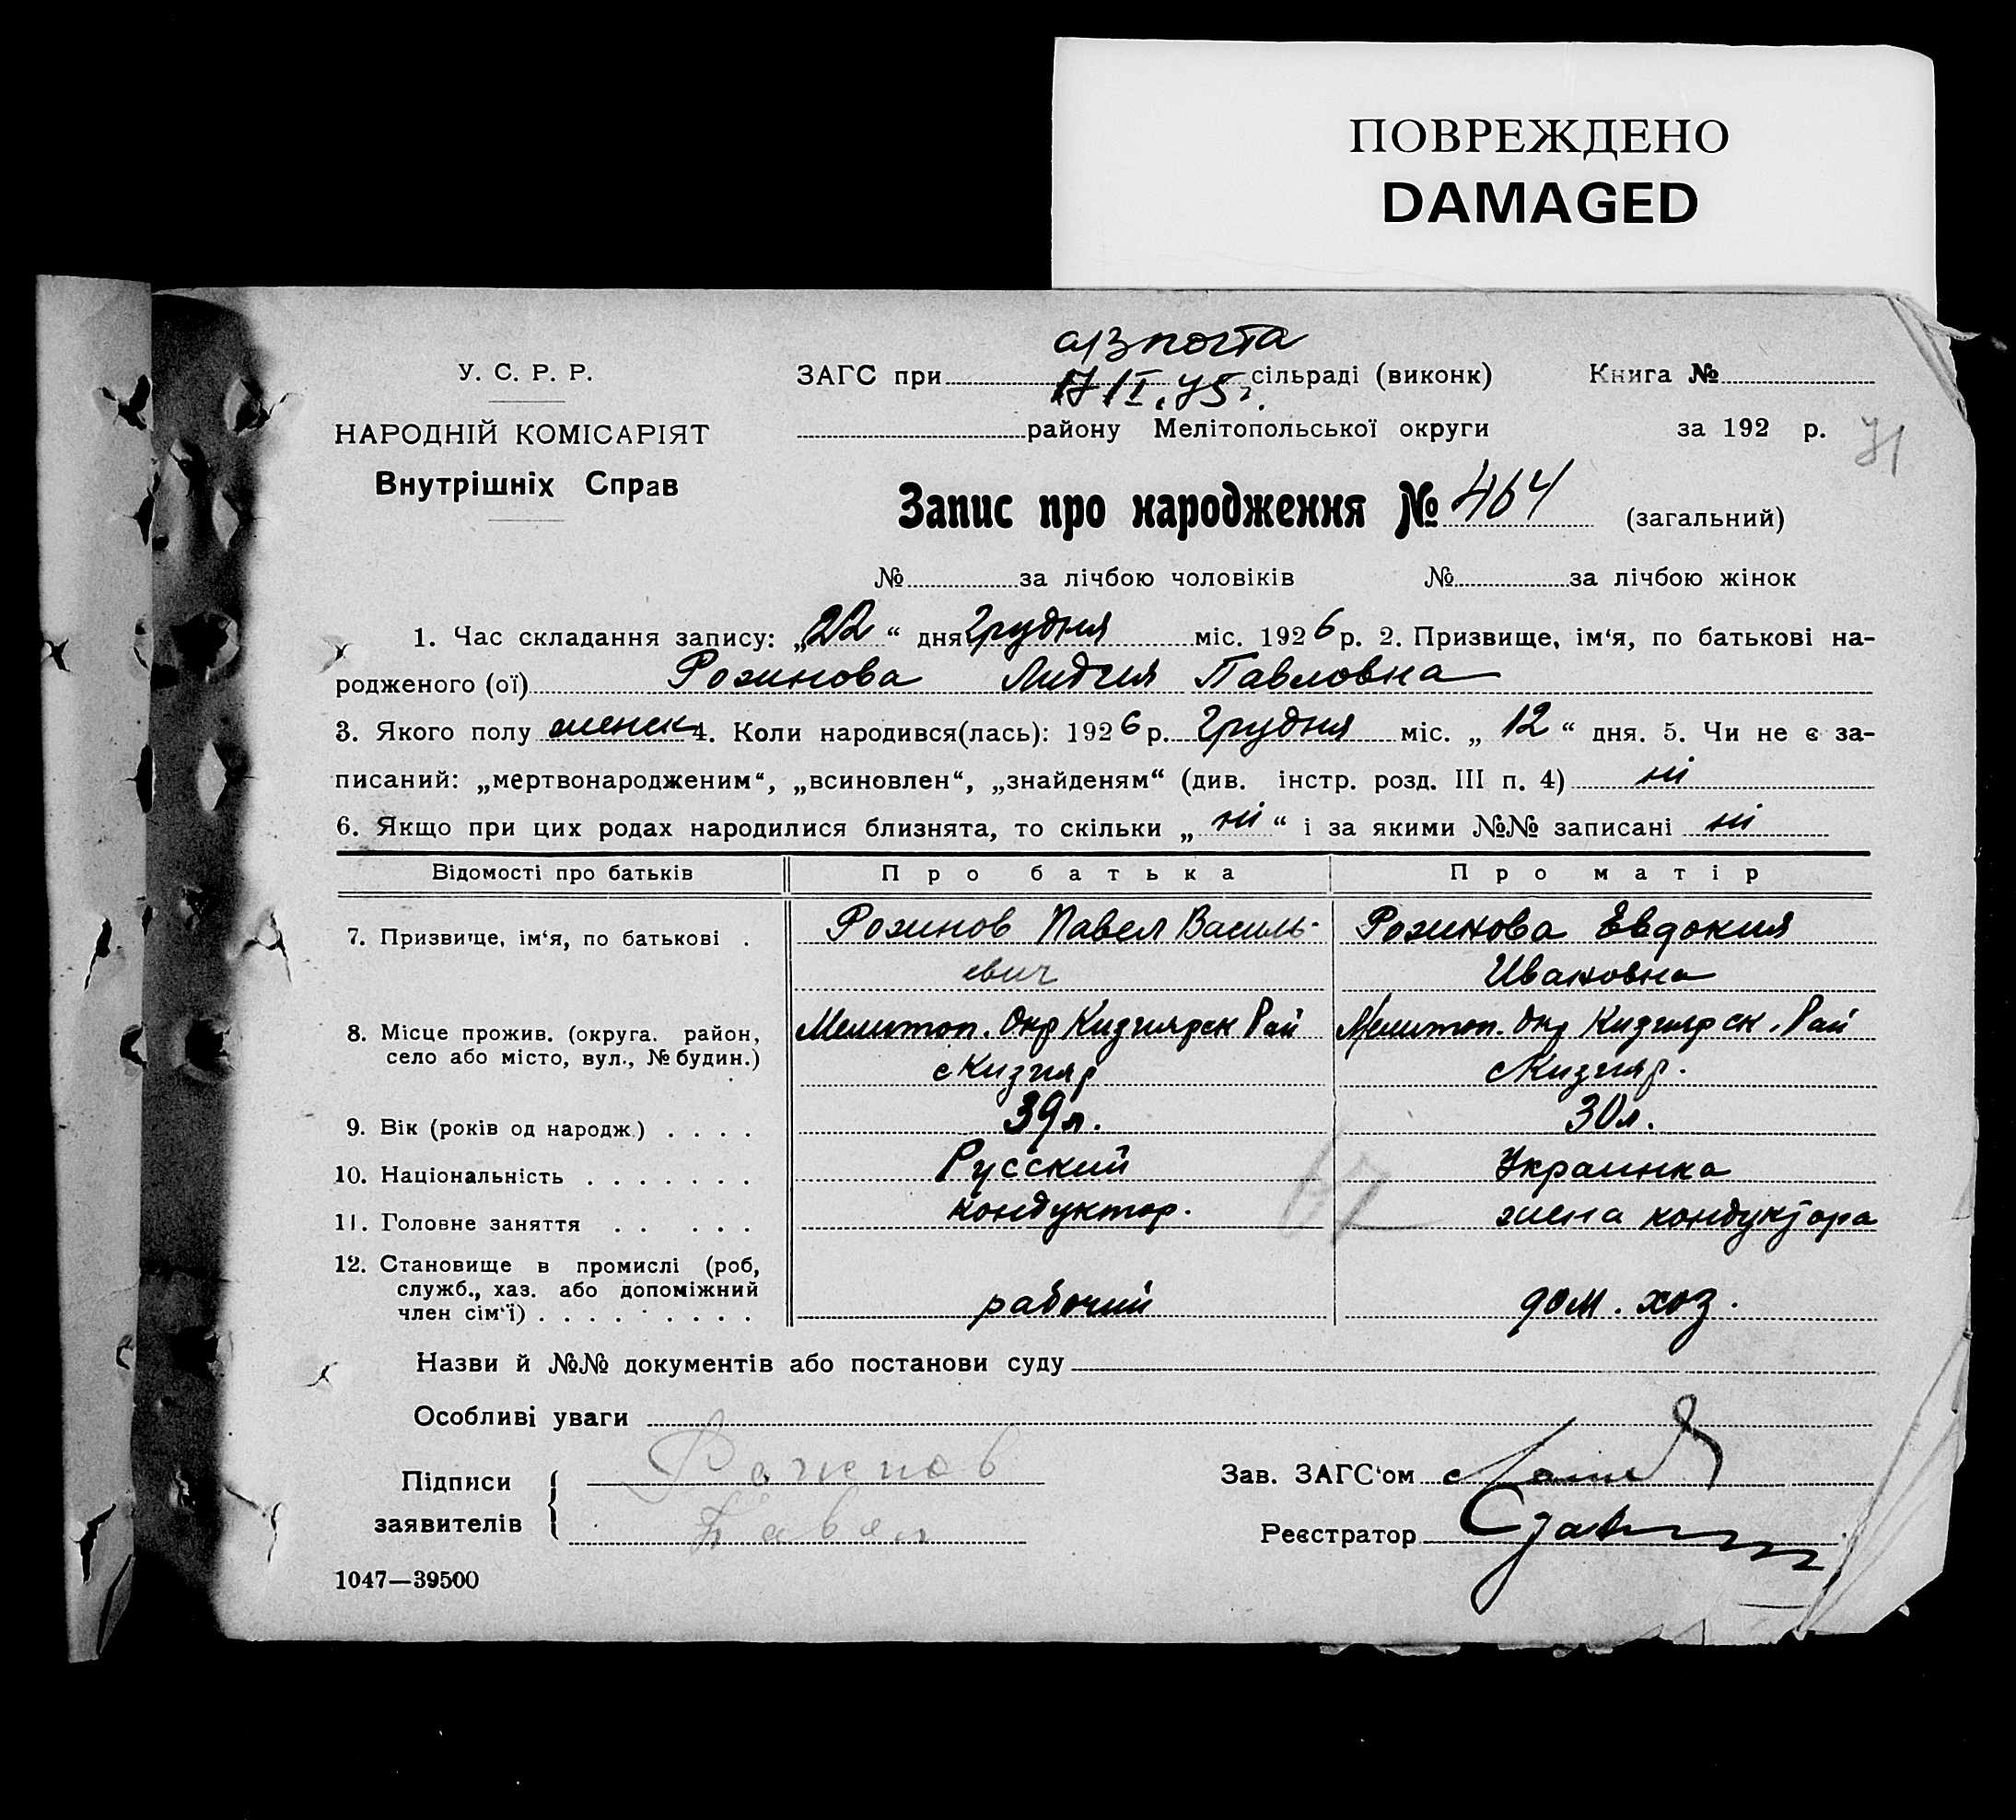 ПОВРЕЖДЕНО
DAMAGED
У. С. Р. Р.
НАРОДНІЙ КОМІСАРІЯТ
Внутрішніх Справ
а/з почта
ЗАГС при сільраді (виконк) Книга №
17/I.75г.
району Мелітопольської округи за 192 р.
71
Запис про народження № 464 (загальний)
№ за лічбою чоловіків № за лічбою жінок
1. Час складання запису: „22“ дня грудня міс. 1926 р. 2. Призвище, ім‘я, по батькові на-
родженого (ої) Розинова Лидия Павловна
3. Якого полу женск 4. Коли народився(лась): 1926 р. грудня міс. „12“ дня. 5. Чи не є за-
писаний: „мертвонародженим“, „всиновлен“, „знайденям“ (див. інстр. розд. III п. 4) ні
6. Якщо при цих родах народилися близнята, то скільки „ні“ і за якими №№ записані ні
Відомості про батьків Про батька Про матір
7. Призвище, ім‘я, по батькові . Розинов Павел Василь- Розинова Евдокия
евич Ивановна
8. Місце прожив. (округа. район, Мелитоп. Окр Кизиярск Рай Мелитоп. Окр Кизиярск. Рай
село або місто, вул., № будин.) с Кизияр с Кизияр.
9. Вік (років од народж.) . . . . 39 л. 30 л.
10. Національність . . . . . . . Русский Украинка
11. Головне заняття . . . . . кондуктор. жена кондуктора
12. Становище в промислі (роб,
служб., хаз. або допоміжний
член сім‘ї) . . . . . . . . рабочий дом. хоз.
Назви й №№ документів або постанови суду
Особливі уваги
Підписи Розинов Зав. ЗАГС‘ом
заявителів Павел Реєстратор
1047—39500